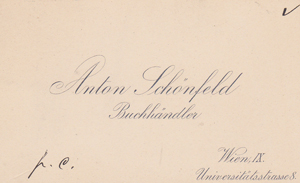 Anton Schönfeld
Buchhändler
p. c.
Wien, IX.
Universitätsstrasse 8.